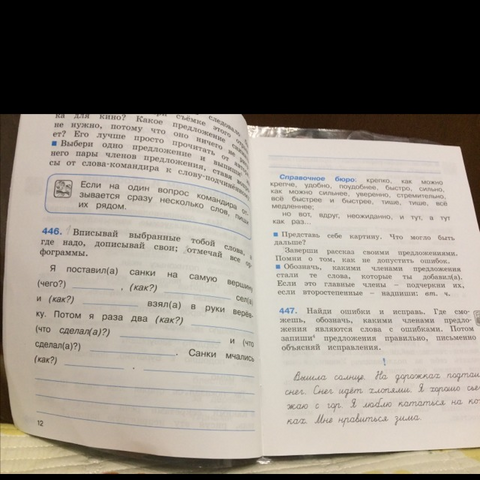 ка для кино? Какое предложение
не нужно, потому что оно ничего не
ет? Его лучше просто прочитать от
■ Выбери одно предложение и выпиши
него пары членов предложения, ставя
сы от слова-командира к слову-подчинён
Если на один вопрос командира
зывается сразу несколько слов, пиши
их рядом.
446. Вписывай выбранные тобой слова,
где надо, дописывай свои; отмечай все
фограммы.
Я поставил(а) санки на самую вершин
(чего?) , (как?) сел(а)
и (как?) взял(а) в руки верёв-
ку. Потом я раза два (как?)
(что сделал(а)?) и (что
сделал(а)?) . Санки мчались
(как?) .
12
Справочное бюро: крепко, как можно
крепче, удобно, поудобнее, быстро, сильно,
как можно сильнее, уверенно, стремительно,
всё быстрее и быстрее, тише, тише, всё
медленнее;
но вот, вдруг, неожиданно, и тут, а тут
как раз...
■ Представь себе картину. Что могло быть
дальше?
Заверши рассказ своими предложениями.
Помни о том, как не допустить ошибок.
■ Обозначь, какими членами предложения
стали те слова, которые ты добавил(а).
Если это главные члены – подчеркни их,
если второстепенные – надпиши: вт. ч.
447. Найди ошибки и исправь. Где смо-
жешь, обозначь, какими членами предло-
жения являются слова с ошибками. Потом
запиши предложения правильно, письменно
объясняй исправления.
!
Вышла солнце. На дорожках подтаи
снег. Снег идёт хлопями. Я хорошо съе
жаю с гор. Я люблю кататься на ко
ках. Мне нравиться зима.